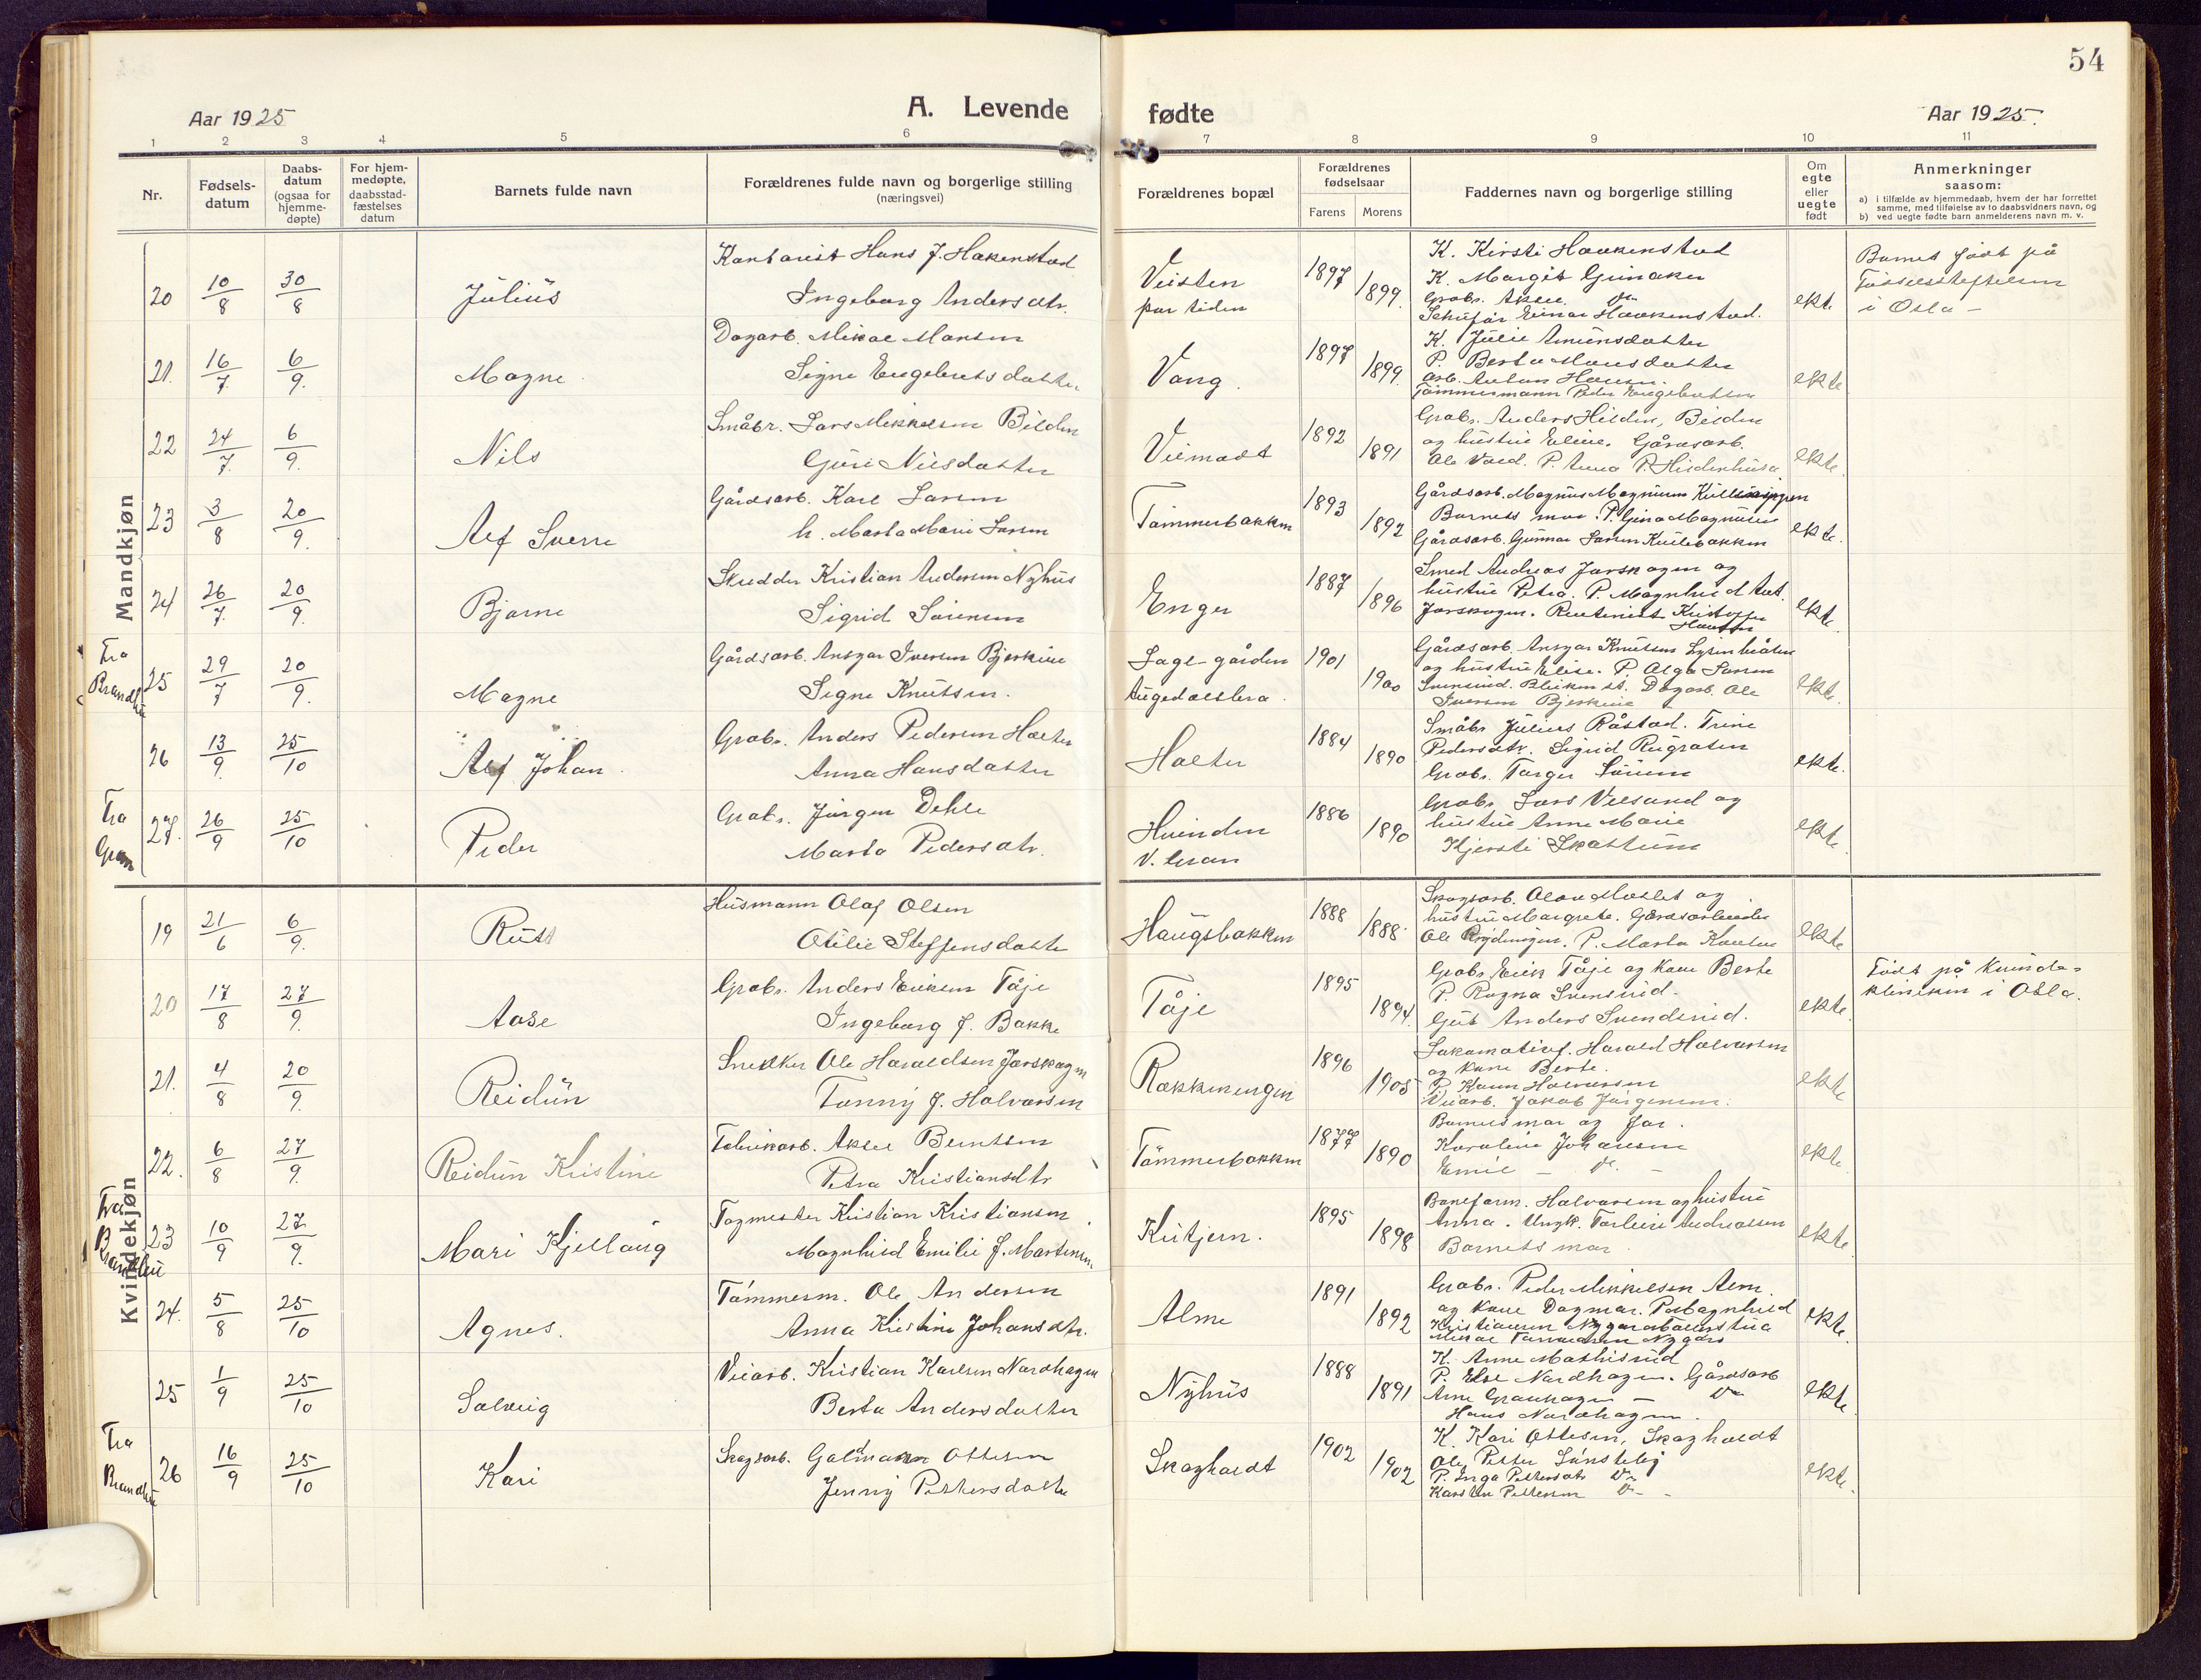 54
Aar 1925
A. Levende
fødte
Aar 1925.
1 2 3 4 5 6 7 8 9 10 11
Nr.
Fødsels-
datum
Daabs-
datum
(ogsaa for
hjemme-
døpte)
For hjem-
medøpte,
daabsstad-
fæstelses
datum
Barnets fulde navn
Forældrenes fulde navn og borgerlige stilling
(næringsvei)
Forældrenes bopæl
Forældrenes
fødselsaar
Farens Morens
Faddernes navn og borgerlige stilling
Om
egte
eller
uegte
født
Anmerkninger
saasom:
a) i tilfælde av hjemmedaab, hvem der har forrettet
samme, med tilføielse av to daabsvidners navn, og
b) ved uegte fødte barn anmelderens navn m. v.
Mandkjøn
20 10/8 30/8 Julius
Kontorist Hans J. Hakenstad
Ingeborg Andersdtr.
Veisten
for tiden
1897 1899.
K. Kirsti Haakenstad
K. Margit Grinaker
Grobr. Aksel do
Einar Haakenstad.
ekte
Barnet født på
Fødselsstiftelsen
i Oslo -
21. 16/7. 6/9. Magne
Dagarb. Mikal Hansen
Signe Engebretsdatter
Vang.
1897 1899.
K. Julie Amundsdatter
P. Berta Hansdatter
Arb. Anton Hansen.
Tømmermann Peder Engebretsen
ekte
22 24/7. 6/9. Nils
Småbr. Lars Mikkelsen Bilden
Guri Nilsdatter
Vilmodt
1892 1891
Grobr. Anders Hilden, Bilden
og hustru Eline. Gårdsarb.
Ole Vold. P. Anna P. Hildenhusa
ekte
23 3/8 20/9. Alf Sverre
Gårdsarb. Karl Larsen
h. Marta Marie Larsen
Tømmerbakken
1893 1892
Gårdsarb. Magnus Magnussen
Barnets mor. P. Gina Magnussen
Gårdsarb. Gunnar Larsen
ekte.
24 26/7. 20/9. Bjarne
Skrædder Kristian Andersen Nyhus
Sigrid Sørensen
Enger
1887 1896
Smed Andreas Jorskogen og
hustru Petra. P. Magnhild Ant.
Jorskogen. Kristoffer
Hansen
ekte.
Fra
Brandbu
25 29/7 20/9. Magne
Gårdsarb. Ansgar Iversen Bjerklie
Signe Knutsen.
Lage-gården
Augedalsbro.
1901 1900
Gårdsarb. Ansgar Knutsen
og hustru Elise. P. Olga Larsen
Svensrud. Dagarb. Ole
Iversen Bjerklie
ekte.
26 13/9. 25/10 Alf Johan.
Grobr. Anders Pedersen Holter
Anna Hansdatter
Holter
1884 1890
Småbr Julius Råstad. Trine
Pedersdtr. Sigrid
Grobr. Torger
ekte.
Fra
Gran
27. 26/9 25/10 Peder
Grobr. Jørgen Dehle
Marta Pedersdtr.
Hvinden
V. Gran
1886 1890
Grobr. Lars Velsand og
hustru Anne Marie
Kjersti Skattum
ekte.
Kvindekjøn
19 21/6 6/9. Rut
Husmann Olaf Olsen
Otilie Steffensdatter
Haugsbakken
1888 1888.
Skogsarb. og
hustru Margrete. Gårdsarbeider
Ole P. Marta
ekte.
20 17/8 27/9. Aase
Grobr. Anders Eriksen Tøje
Ingeborg J. Bakke
Tøje
1895 1894.
Grobr. Erik Tøje og kone Berte
P. Ragna Svensrud.
Gut Anders Svendsrud.
ekte.
Født på kvinde-
klinikken i Oslo.
21. 4/8 20/9. Reidun
Snekker Ole Haraldsen Jorskogen
Fanny J. Halvorsen
Rokkenengen
1896 1905
Lokomotivf. Harald Halvorsen
og kone Berte.
P. Halvorsen
Veiarb. Jakob Jørgensen.
ekte.
22. 6/8 27/9. Reidun Kristine
Fabrikarb. Aksel Berntsen
Petra Kristiansdtr
Tømmerbakken
1877 1890
Barnets mor og far.
Karoline Johansen
Emil - do. -
ekte.
Fra
Brandbu
23 10/9 27/9. Mari Kjellaug
Togmester Kristian Kristiansen
Magnhild Emilie J. Martinsen.
Kutjern.
1895 1898
Baneform. Halvorsen og hustru
Anna. Ungk. Andreassen
Barnets mor.
ekte.
24. 5/8 25/10 Agnes.
Tømmerm. Ole Andersen
Anna Kristine Johansdtr.
Alme
1891 1892
Grobr. Peder Mikkelsen Alm.
og kone Dagmar. P. Magnhild
Kristiansen
Mikal
ekte.
25 1/9 25/10 Solveig
Veiarb. Kristian Karlsen Nordhagen
Berta Andersdatter
Nyhus
1888 1891
K. Anne Mathisrud
P. Else Nordhagen. Gårdsarb
Arne Granhagen - do
Hans Nordhagen.
ekte.
Fra
Brandbu
26 16/9 25/10 Kari
Skogsarb. Galmann Ottesen
Jenny Pettersdatter
Skogholdt
1902 1902
K. Kari Ottesen, Skogholdt
Ole Petter Sønsteby
P. Inga Pettersdtr do
Karsten Pettersen do -
ekte.